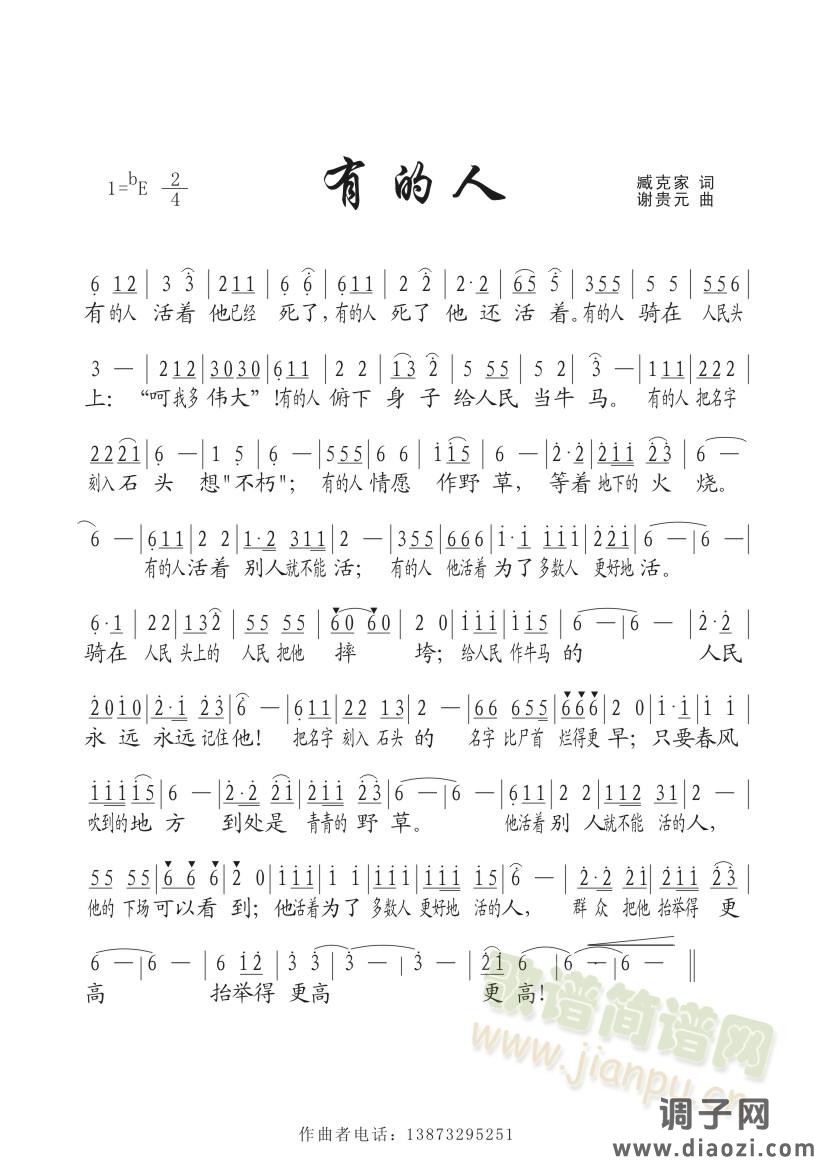 有的人
1=bE 2/4
臧克家 词
谢贵元 曲
6 12 | 3 3 | 211 | 6 6 | 611 | 2 2 | 2·2 | 65 5 | 355 | 5 5 | 556 |
有的人 活着 他已经 死了，有的人 死了 他 还 活 着。有的人 骑在 人民头
3 — | 212 | 3030 | 611 | 2 2 | 13 2 | 5 55 | 5 2 | 3 — | 111 | 222 |
上：“呵我多 伟大”！有的人 俯下 身 子 给人民 当牛 马。 有的人 把名字
2221 | 6 — | 1 5 | 6 — | 555 | 6 6 | 156 | 6 — | 2·2 | 211 | 23 | 6 — |
刻入石 头 想"不朽"；有的人 情愿 作野 草，等着 地下的 火 烧。
6 — | 611 | 2 2 | 1·2 311 | 2 — | 355 | 666 | 1·1 111 | 221 | 6 — | 6 — |
有的人活着 别人就不能 活；有的人 他活着 为了 多数人 更好地 活。
6·1 | 22 | 132 | 55 55 | 60 60 | 2 0 | 111 | 155 | 6 — | 6 — | 2·2 |
骑在 人民 头上的 人民 把他 摔 垮；给人民 作牛马 的 人民
2010 | 2·1 23 | 6 — | 611 | 22 13 | 2 — | 66 655 | 666 | 2 0 | 1 1 | 1 1 |
永远 永远 记住 他！ 把名字 刻入 石头 的 名字 比尸首 烂得更 早；只要春风
111 15 | 6 — | 2·2 21 | 211 23 | 6 — | 6 — | 611 | 2 2 | 112 31 | 2 — |
吹到的 地 方 到处是 青青的 野 草。 他活着 别 人就不能 活的人，
55 55 | 6 6 6 | 2 0 | 111 | 1 1 | 111 | 111 | 15 | 6 — | 1 1 | 66 | 111 | 23 |
他的 下场 可以看 到；他活着为了 多数人 更好地 活的人， 群众 把他 抬举得 更
6 — | 6 — | 6 12 | 3 3 | 3 — | 3 — | 21 6 | 6 · | 6 — ‖
高 抬举得 更高 更 高！
歌谱简谱网
www.jianpu.cn
作曲者电话：13873295251
调子网
www.diaozi.com